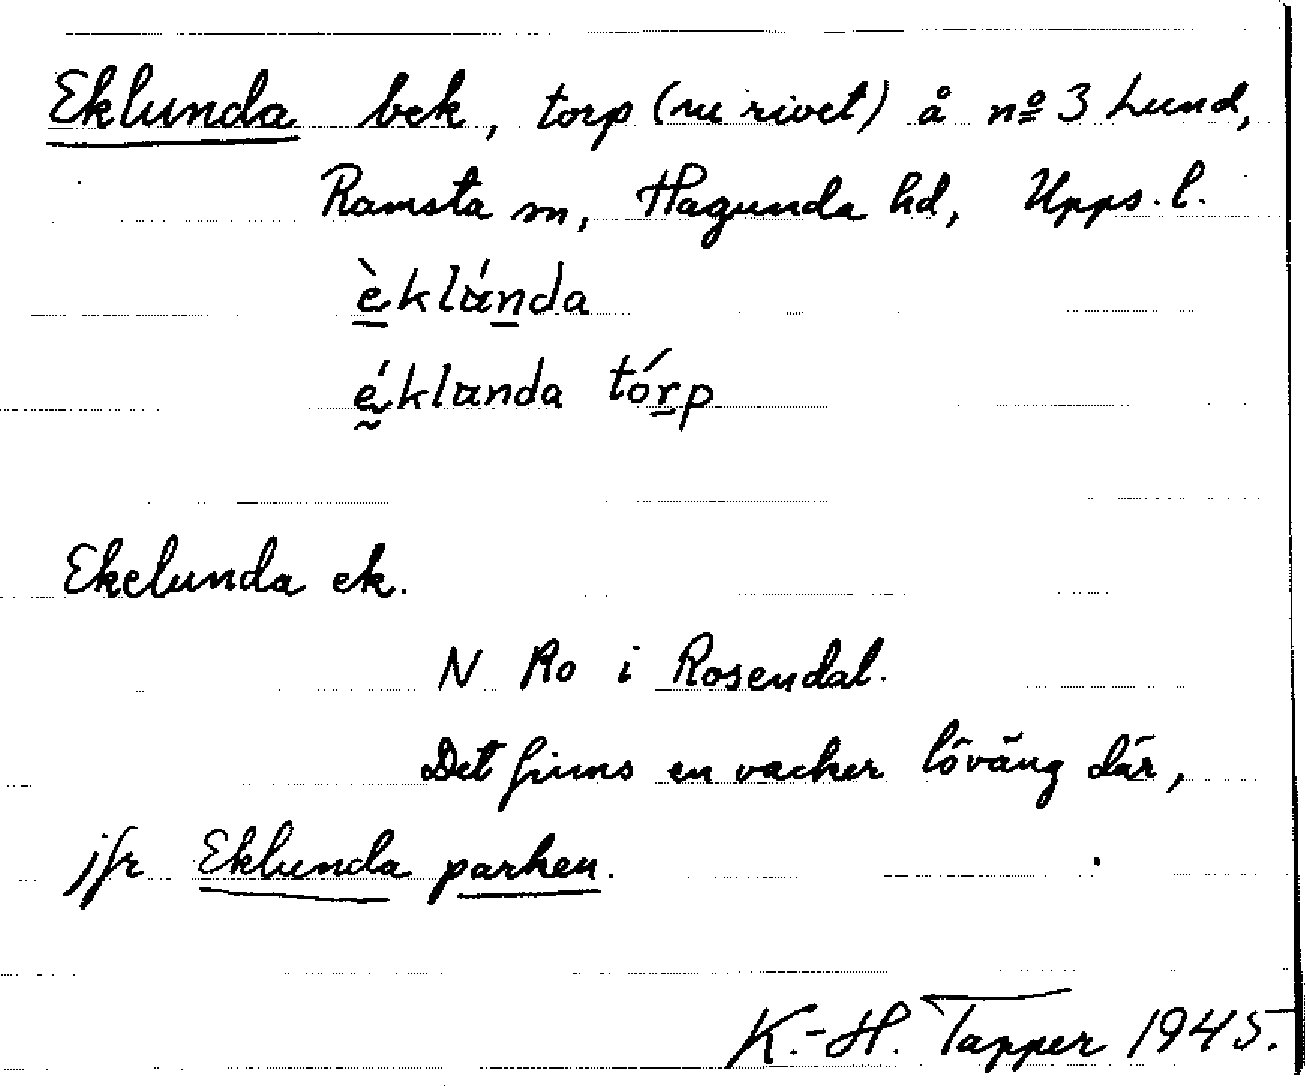 Eklunda bek, torp (nu rivet) å nº 3 Lund,
Ramsta sn, Hagunda hd, Upps. l.
èklánda
éklanda tórp
Ekelunda ek.
N Ro i Rosendal.
Det finns en vacker löväng där,
jfr Eklunda parken.
K.-H. Tapper 1945.